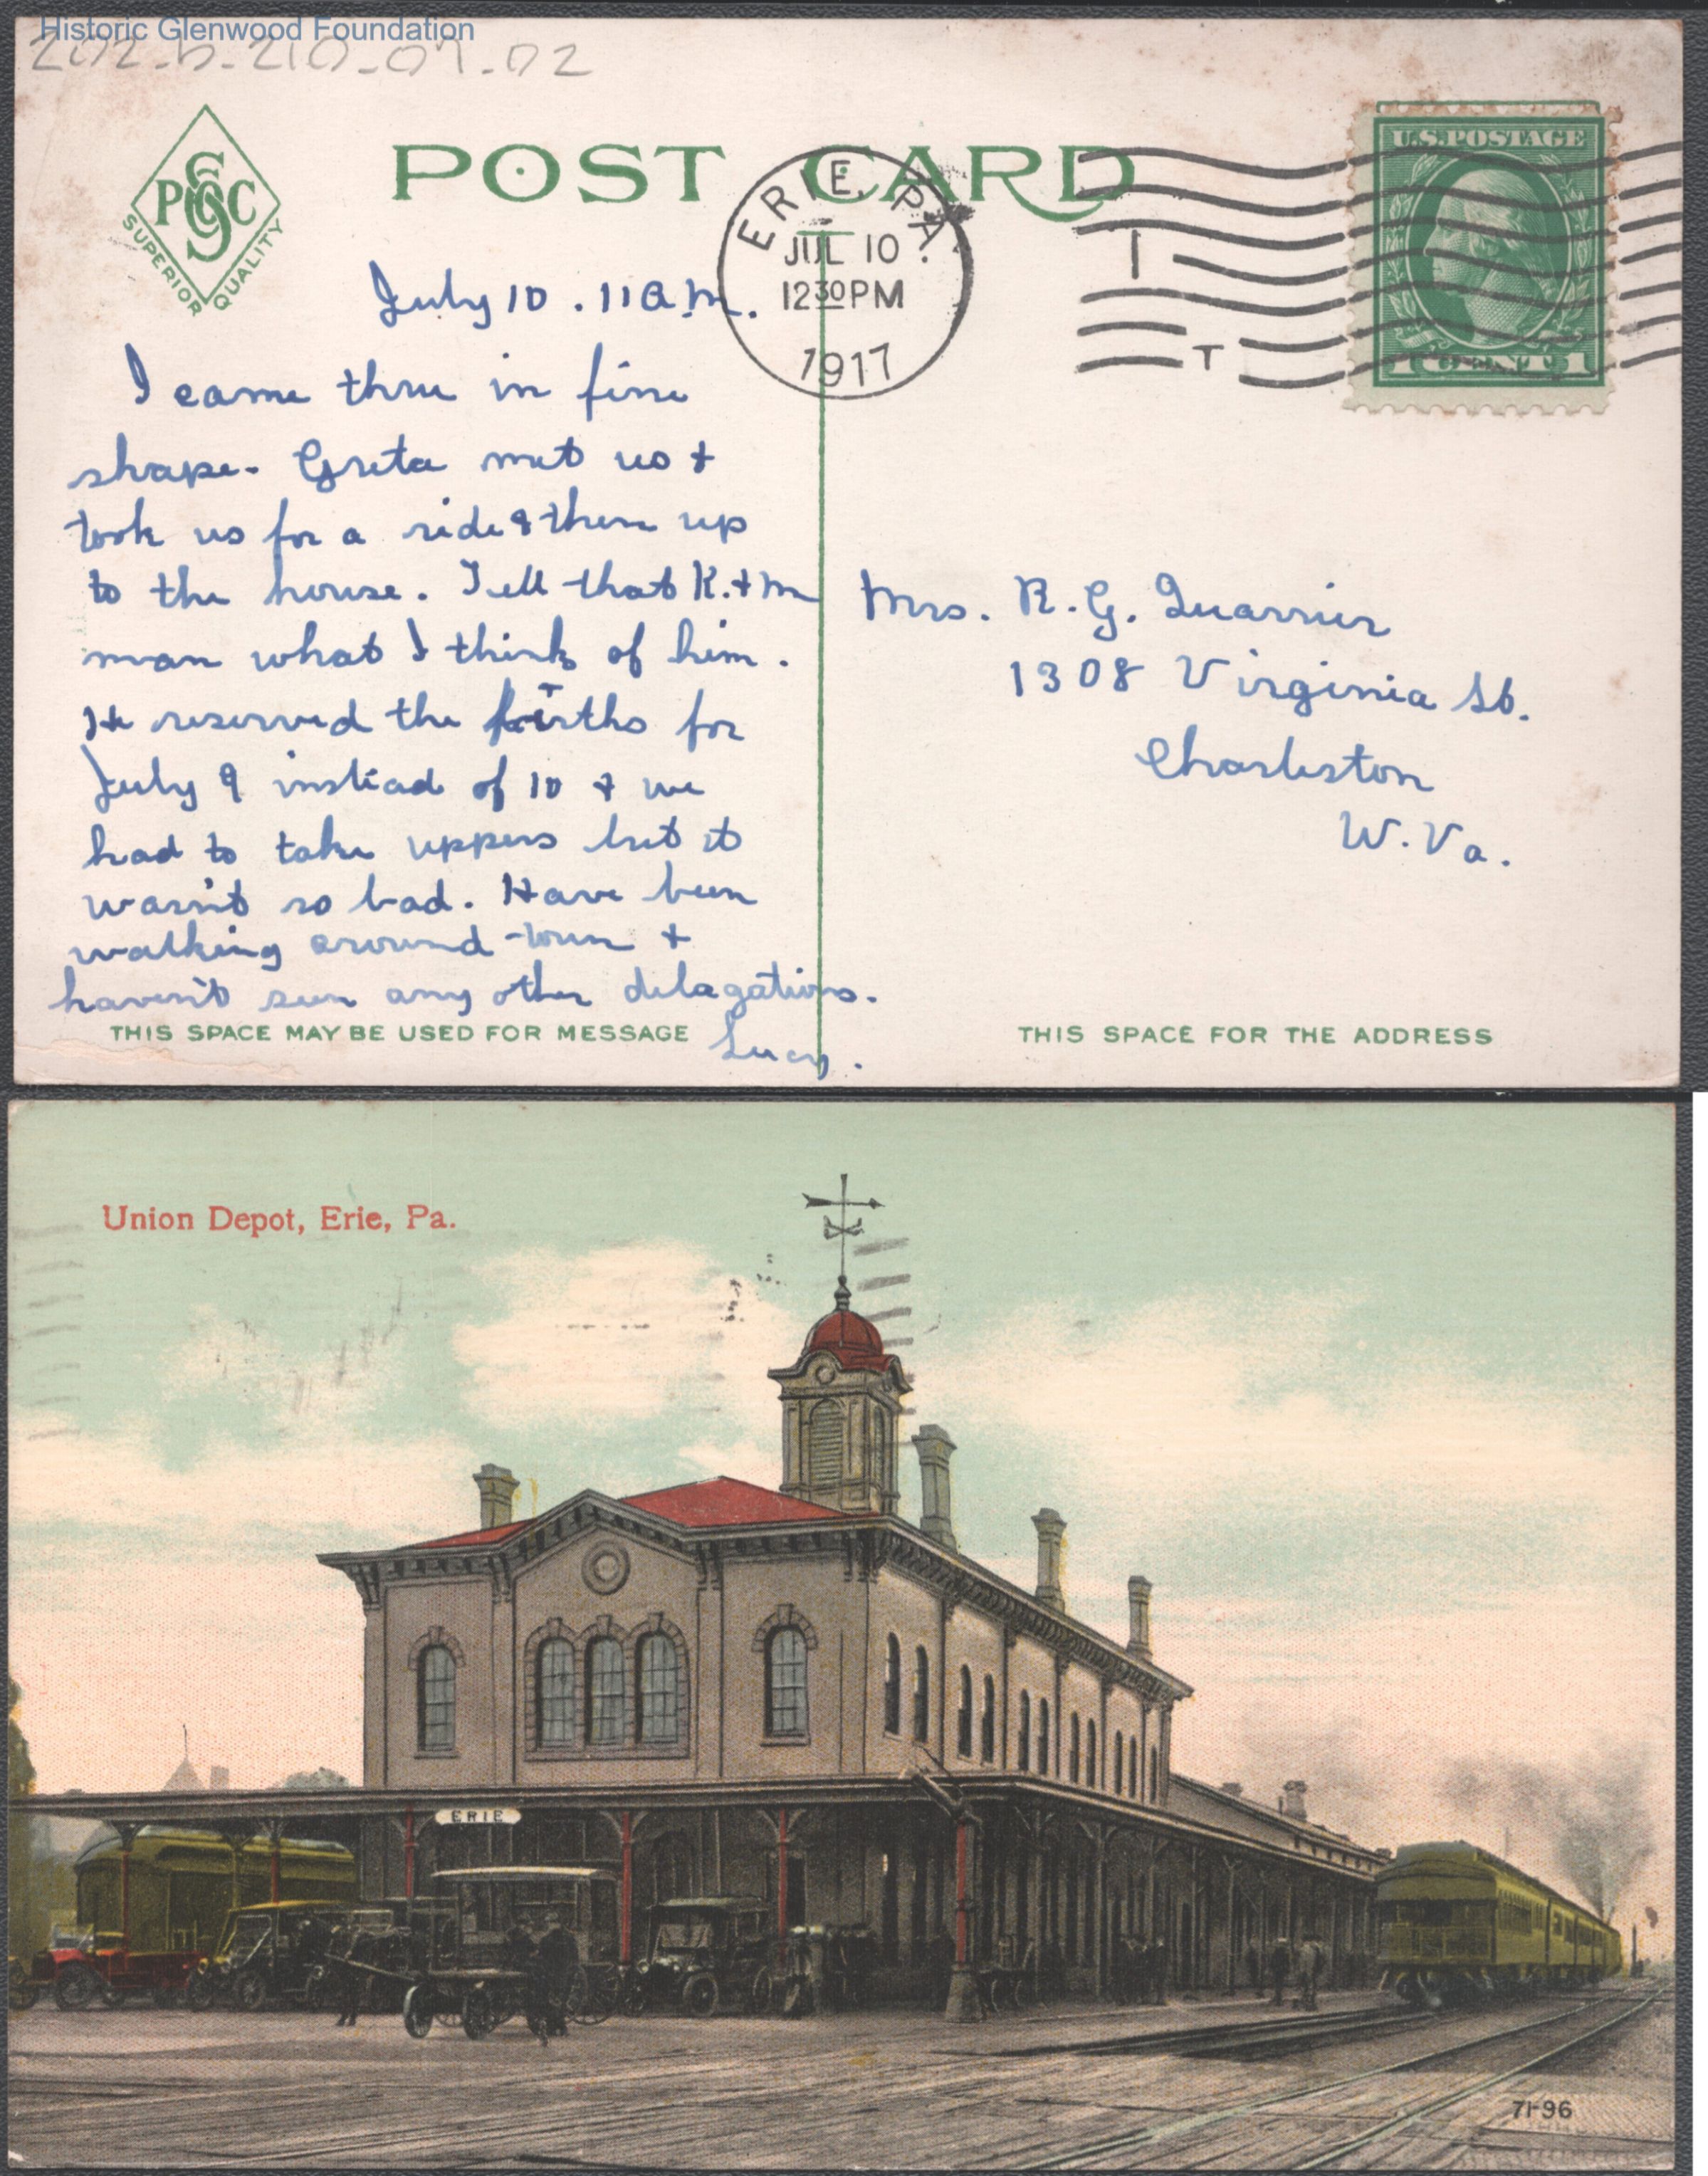 Historic Glenwood Foundation
202-b-210-07-02
PSGC
SUPERIOR QUALITY
POST CARD
ERIE, PA.
JUL 10
12 30 PM
1917
U.S. POSTAGE
1 CENT 1
July 10. 11 a.m.
I came thru in fine
shape. Greta met us +
took us for a ride & then up
to the house. Tell that K. + M
man what I think of him.
He reserved the births for
July 9 instead of 10 + we
had to take uppers but it
wasn't so bad. Have been
walking around town +
haven't seen any other delagations.
Lucy.
Mrs. R. G. Quarrier
1308 Virginia St.
Charleston
W. Va.
THIS SPACE MAY BE USED FOR MESSAGE
THIS SPACE FOR THE ADDRESS
Union Depot, Erie, Pa.
ERIE
71-96